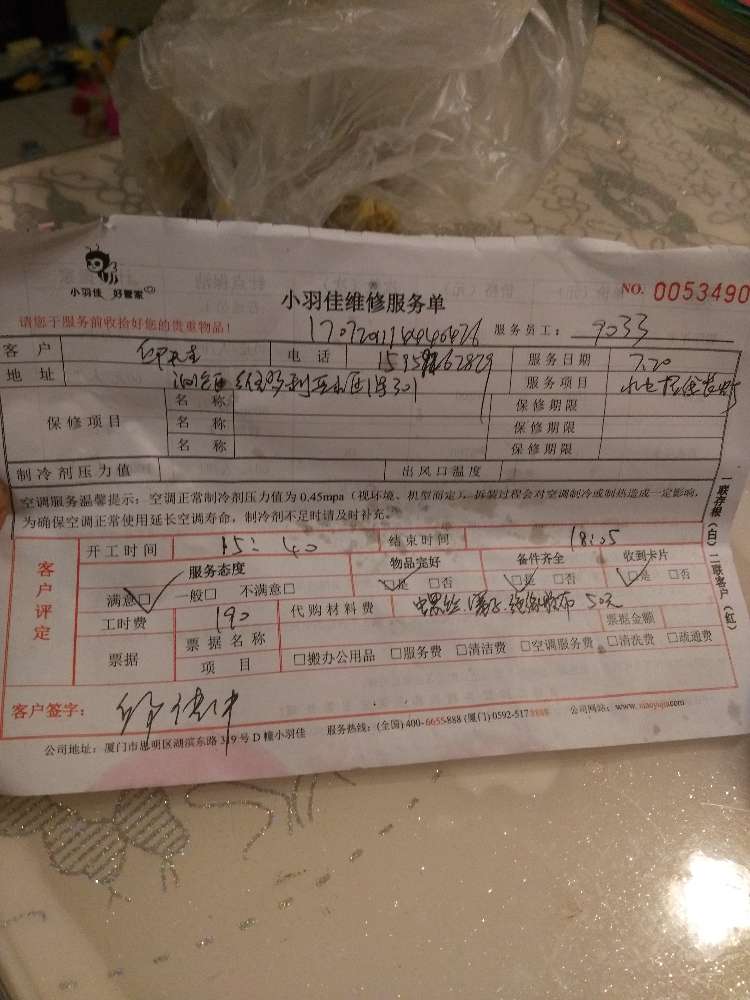 小羽佳 好管家
小羽佳维修服务单
NO. 0053490
请您于服务前收拾好您的贵重物品！
服务员工： 9033
客 户 电 话 服务日期 7.20
地 址 服务项目
保修项目 名 称 保修期限
名 称 保修期限
名 称 保修期限
制冷剂压力值 出风口温度
空调服务温馨提示：空调正常制冷剂压力值为 0.45mpa（视环境、机型而定），拆装过程会对空调制冷或制热造成一定影响，
为确保空调正常使用延长空调寿命，制冷剂不足时请及时补充。
一联存根（白）二联客户（红）
客户评定
开工时间 15:40 结束时间 18:05
服务态度 物品完好 备件齐全 收到卡片
满意□ 一般□ 不满意□ □是 □否 □是 □否 □是 □否
工时费 190 代购材料费 50元
票据 票据名称 票据金额
项 目 □搬办公用品 □服务费 □清洁费 □空调服务费 □清洗费 □疏通费
客户签字：
公司地址：厦门市思明区湖滨东路 319 号 D 幢小羽佳 服务热线：(全国) 400-6655-888 (厦门) 0592-517 公司网站：www.xiaoyujia.com